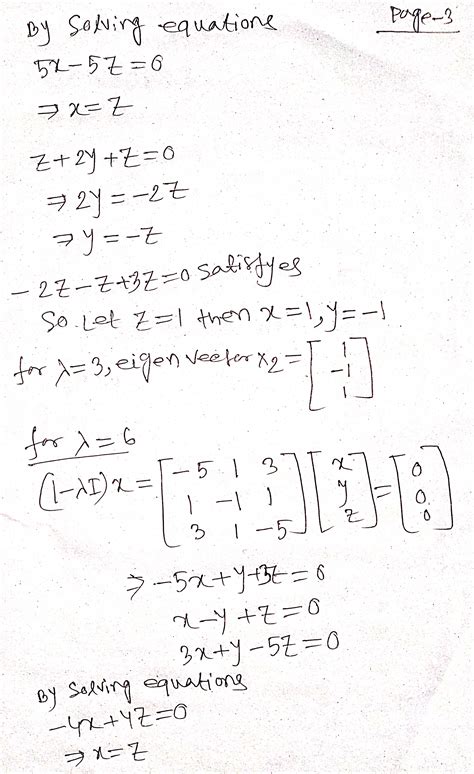 By Solving equations Page-3
5x-5z=0
⇒ x=z
z+2y+z=0
⇒ 2y=-2z
⇒ y=-z
-2z-z+3z=0 satisfyes
So Let z=1 then x=1, y=-1
for λ=3, eigen vector x₂= [1 -1 1]
for λ=6
(1-λI)x= [-5 1 3; 1 -1 1; 3 1 -5] [x y z] = [0 0 0]
⇒ -5x+y+3z=0
x-y+z=0
3x+y-5z=0
By Solving equations
-4x+4z=0
⇒ x=z